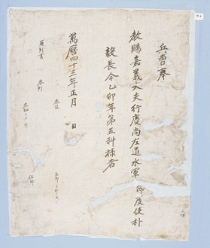 兵曹奉
教賜嘉義大夫行慶尚左道水軍節度使朴
毅長今乙卯年第五科祿者
萬曆四十三年正月 日
判書
參判
參議